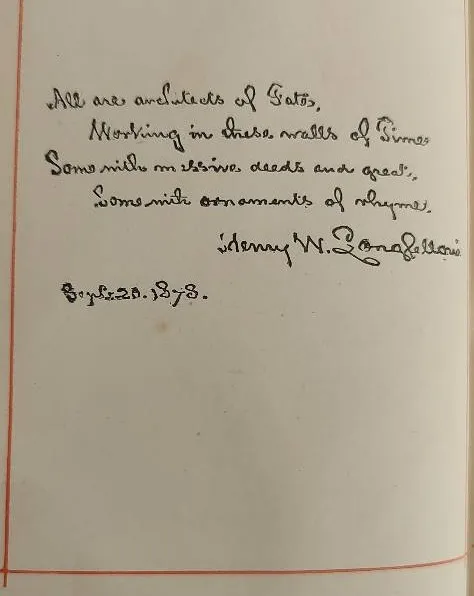 All are architects of Fate,
Working in these walls of Time,
Some with massive deeds and great,
Some with ornaments of rhyme.
Henry W. Longfellow
Sept. 1878.